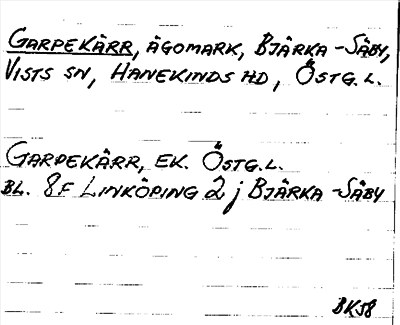 GARPEKÄRR, ÄGOMARK, BJÄRKA-SÄBY,
VISTS SN, HANEKINDS HD, ÖSTG.L.
GARPEKÄRR, EK. ÖSTG.L.
BL. 8F LINKÖPING 2 j BJÄRKA-SÄBY
BK58